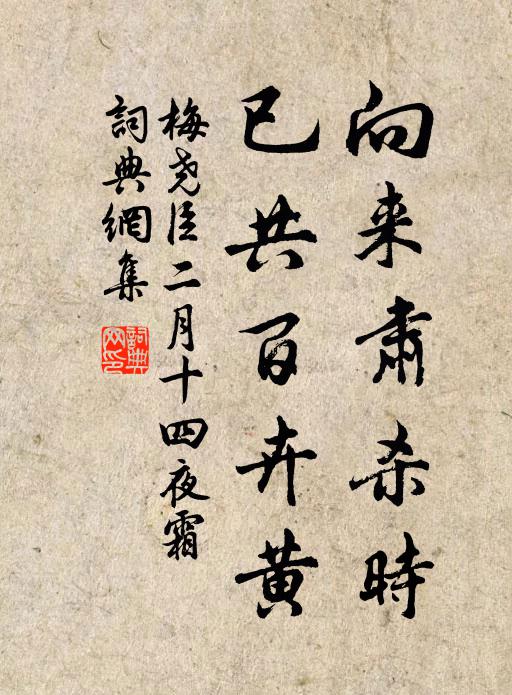 向来肅杀時
已共百卉黄
梅尧臣二月十四夜霜
詞典網集
詞典网印